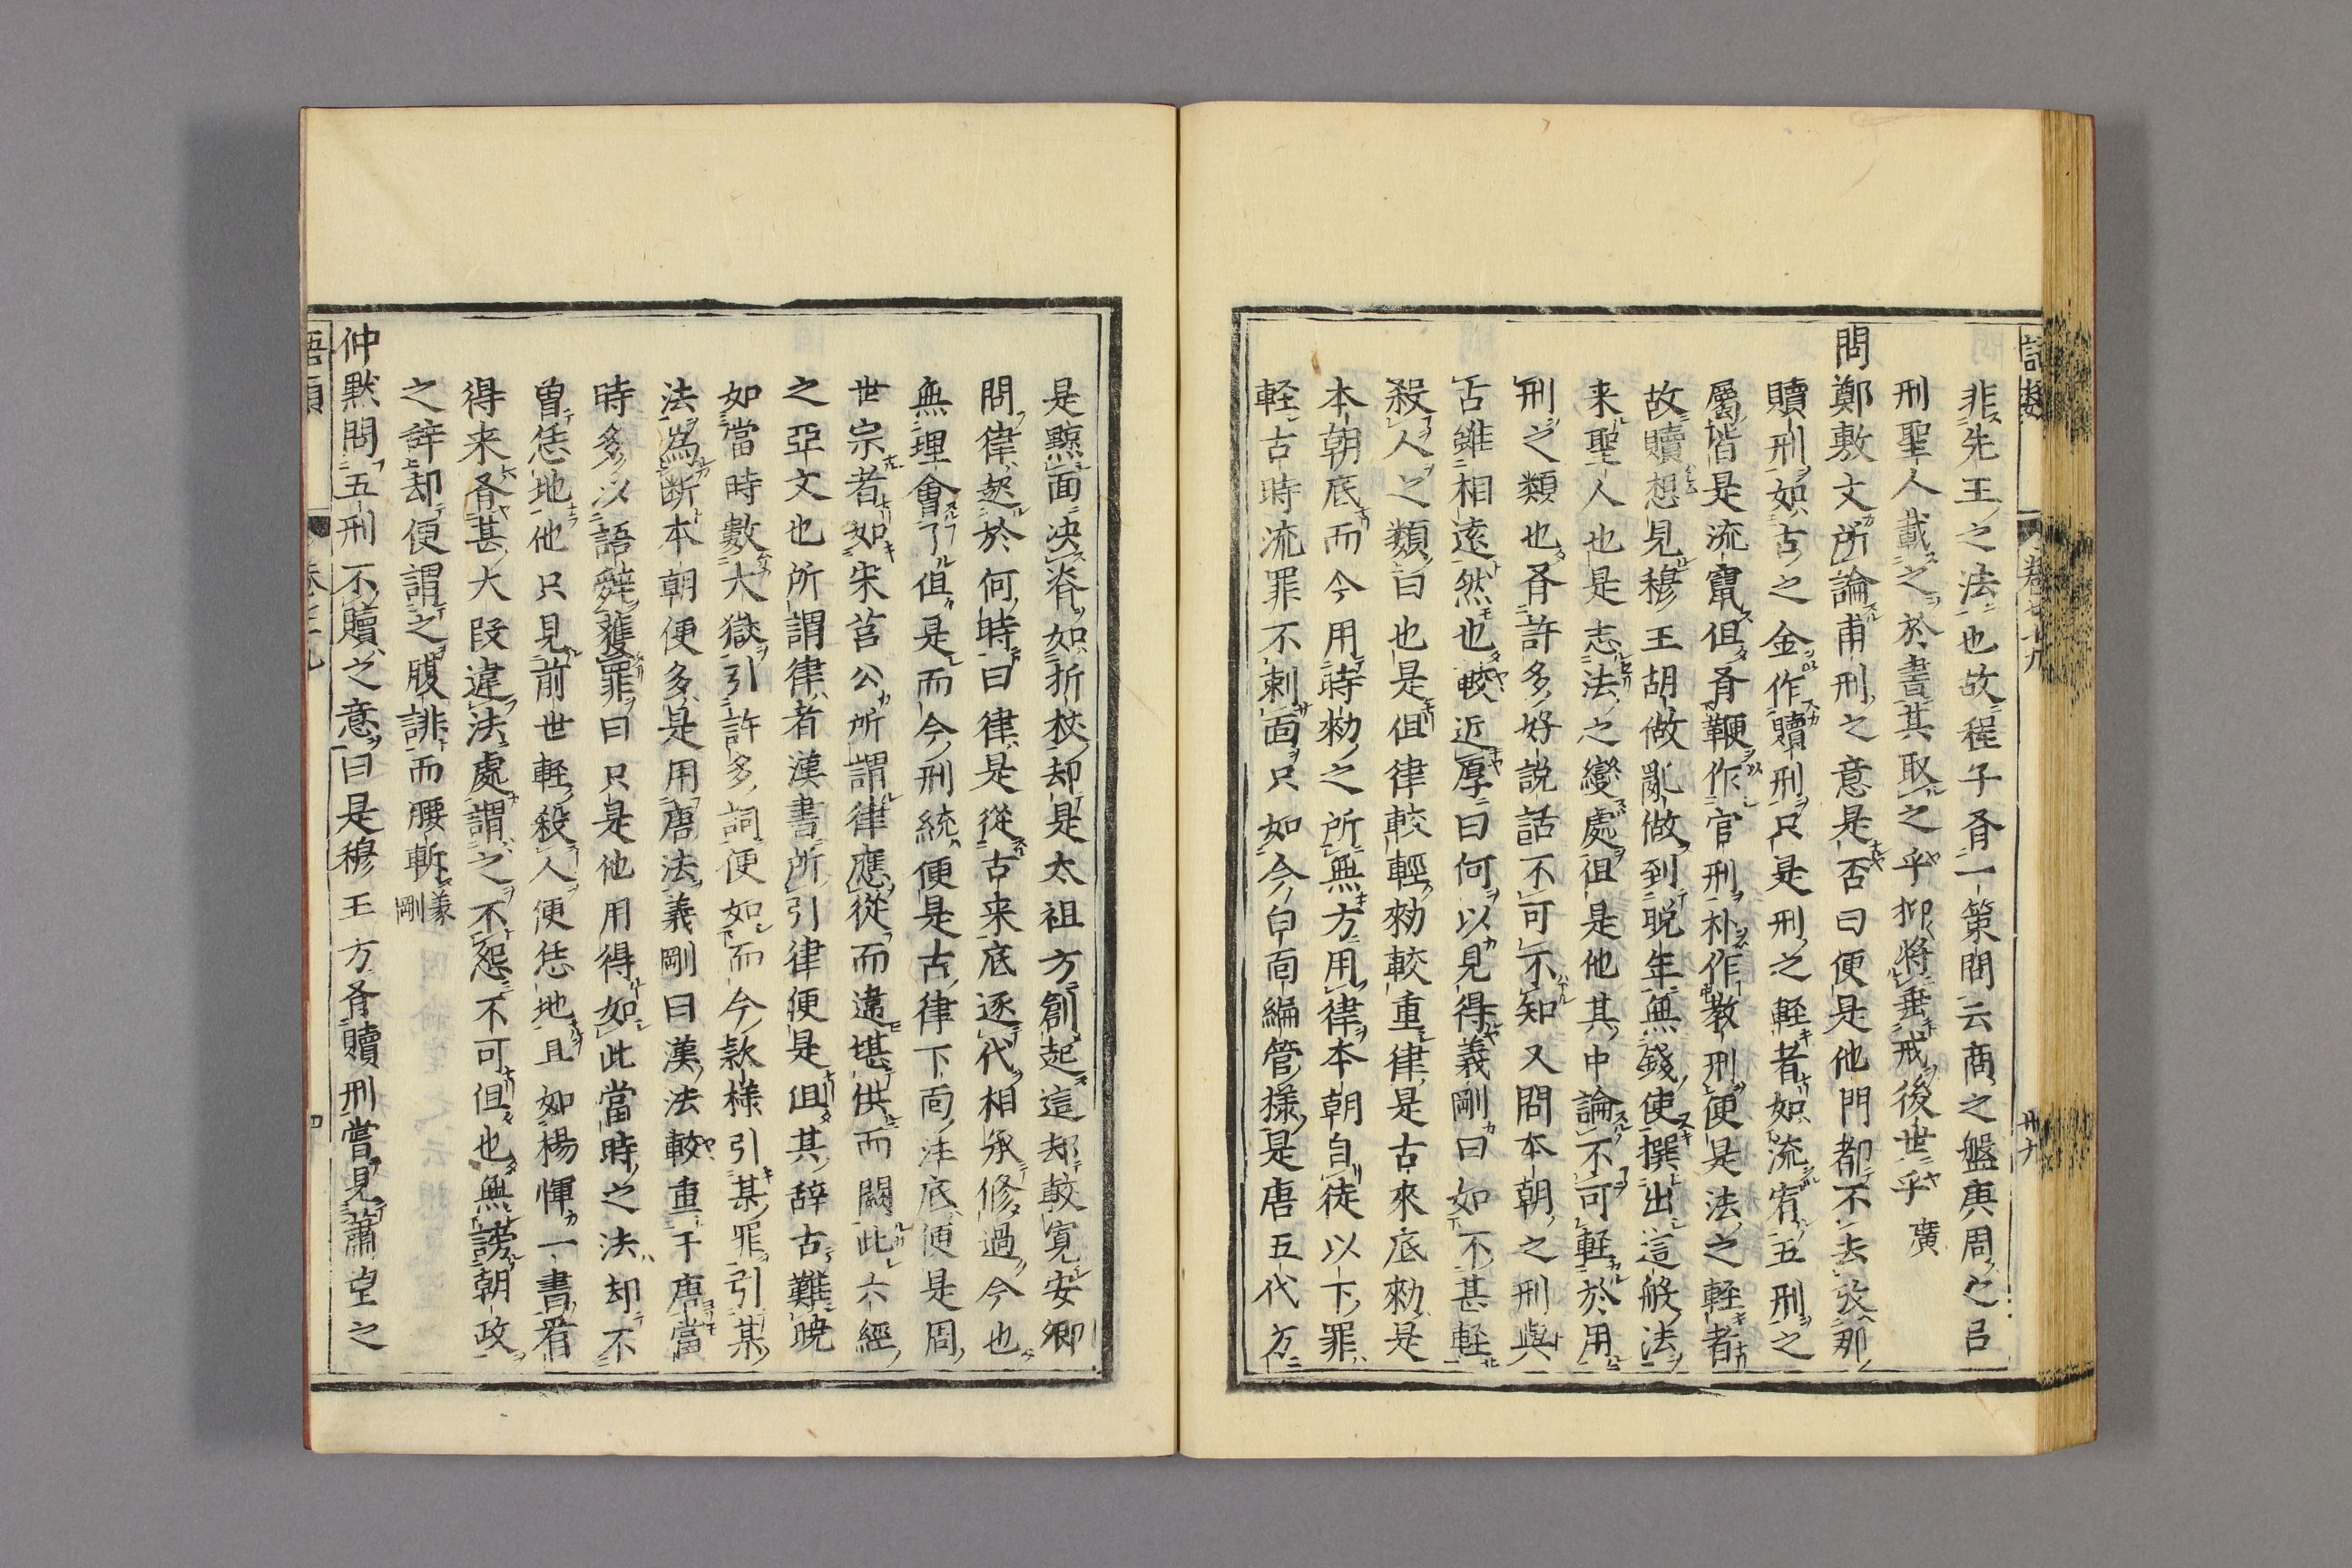 語類　卷七十九　廿九
非先王之法也故程子有一策問云商之盤庚周之吕
刑聖人載之於書其取之乎抑將垂戒後世乎 廣
問鄭敷文所論甫刑之意是否曰便是他門都不去攷那
贖刑如古之金作贖刑只是刑之輕者如流宥五刑之
屬皆是流竄但有鞭作官刑朴作教刑便是法之輕者
故贖想見穆王胡做亂做到晚年無錢使撰出這般法
来聖人也是志法之變處但是他其中論不可輕於用
刑之類也有許多好說話不可不知又問本朝之刑與
古雖相遠然也較近厚曰何以見得義剛曰如不甚輕
殺人之類曰也是但律較輕勑較重律是古來底勑是
本朝底而今用時勑之所無方用律本朝自徒以下罪
輕古時流罪不刺面只如今白面編管樣是唐五代方
是黥面决脊如折杖却是太祖方創起這却較寬安卿
問律起於何時曰律是從古来底逐代相承修過今也
無理會了但是而今刑統便是古律下面注底便是周
世宗者如宋莒公所謂律應從而違堪供而闕此六經
之亞文也所謂律者漢書所引律便是但其辞古難曉
如當時數大獄引許多詞便如而今款樣引某罪引某
法為断本朝便多是用唐法義剛曰漢法較重于唐當
時多以語辭獲罪曰只是他用得如此當時之法却不
曾恁地他只見前世輕殺人便恁地且如楊惲一書看
得来有甚大段違法處謂之不怨不可但也無謗朝政
之辞却便謂之腹誹而腰斬 義剛
仲默問五刑不贖之意曰是穆王方有贖刑嘗見蕭望之
語類